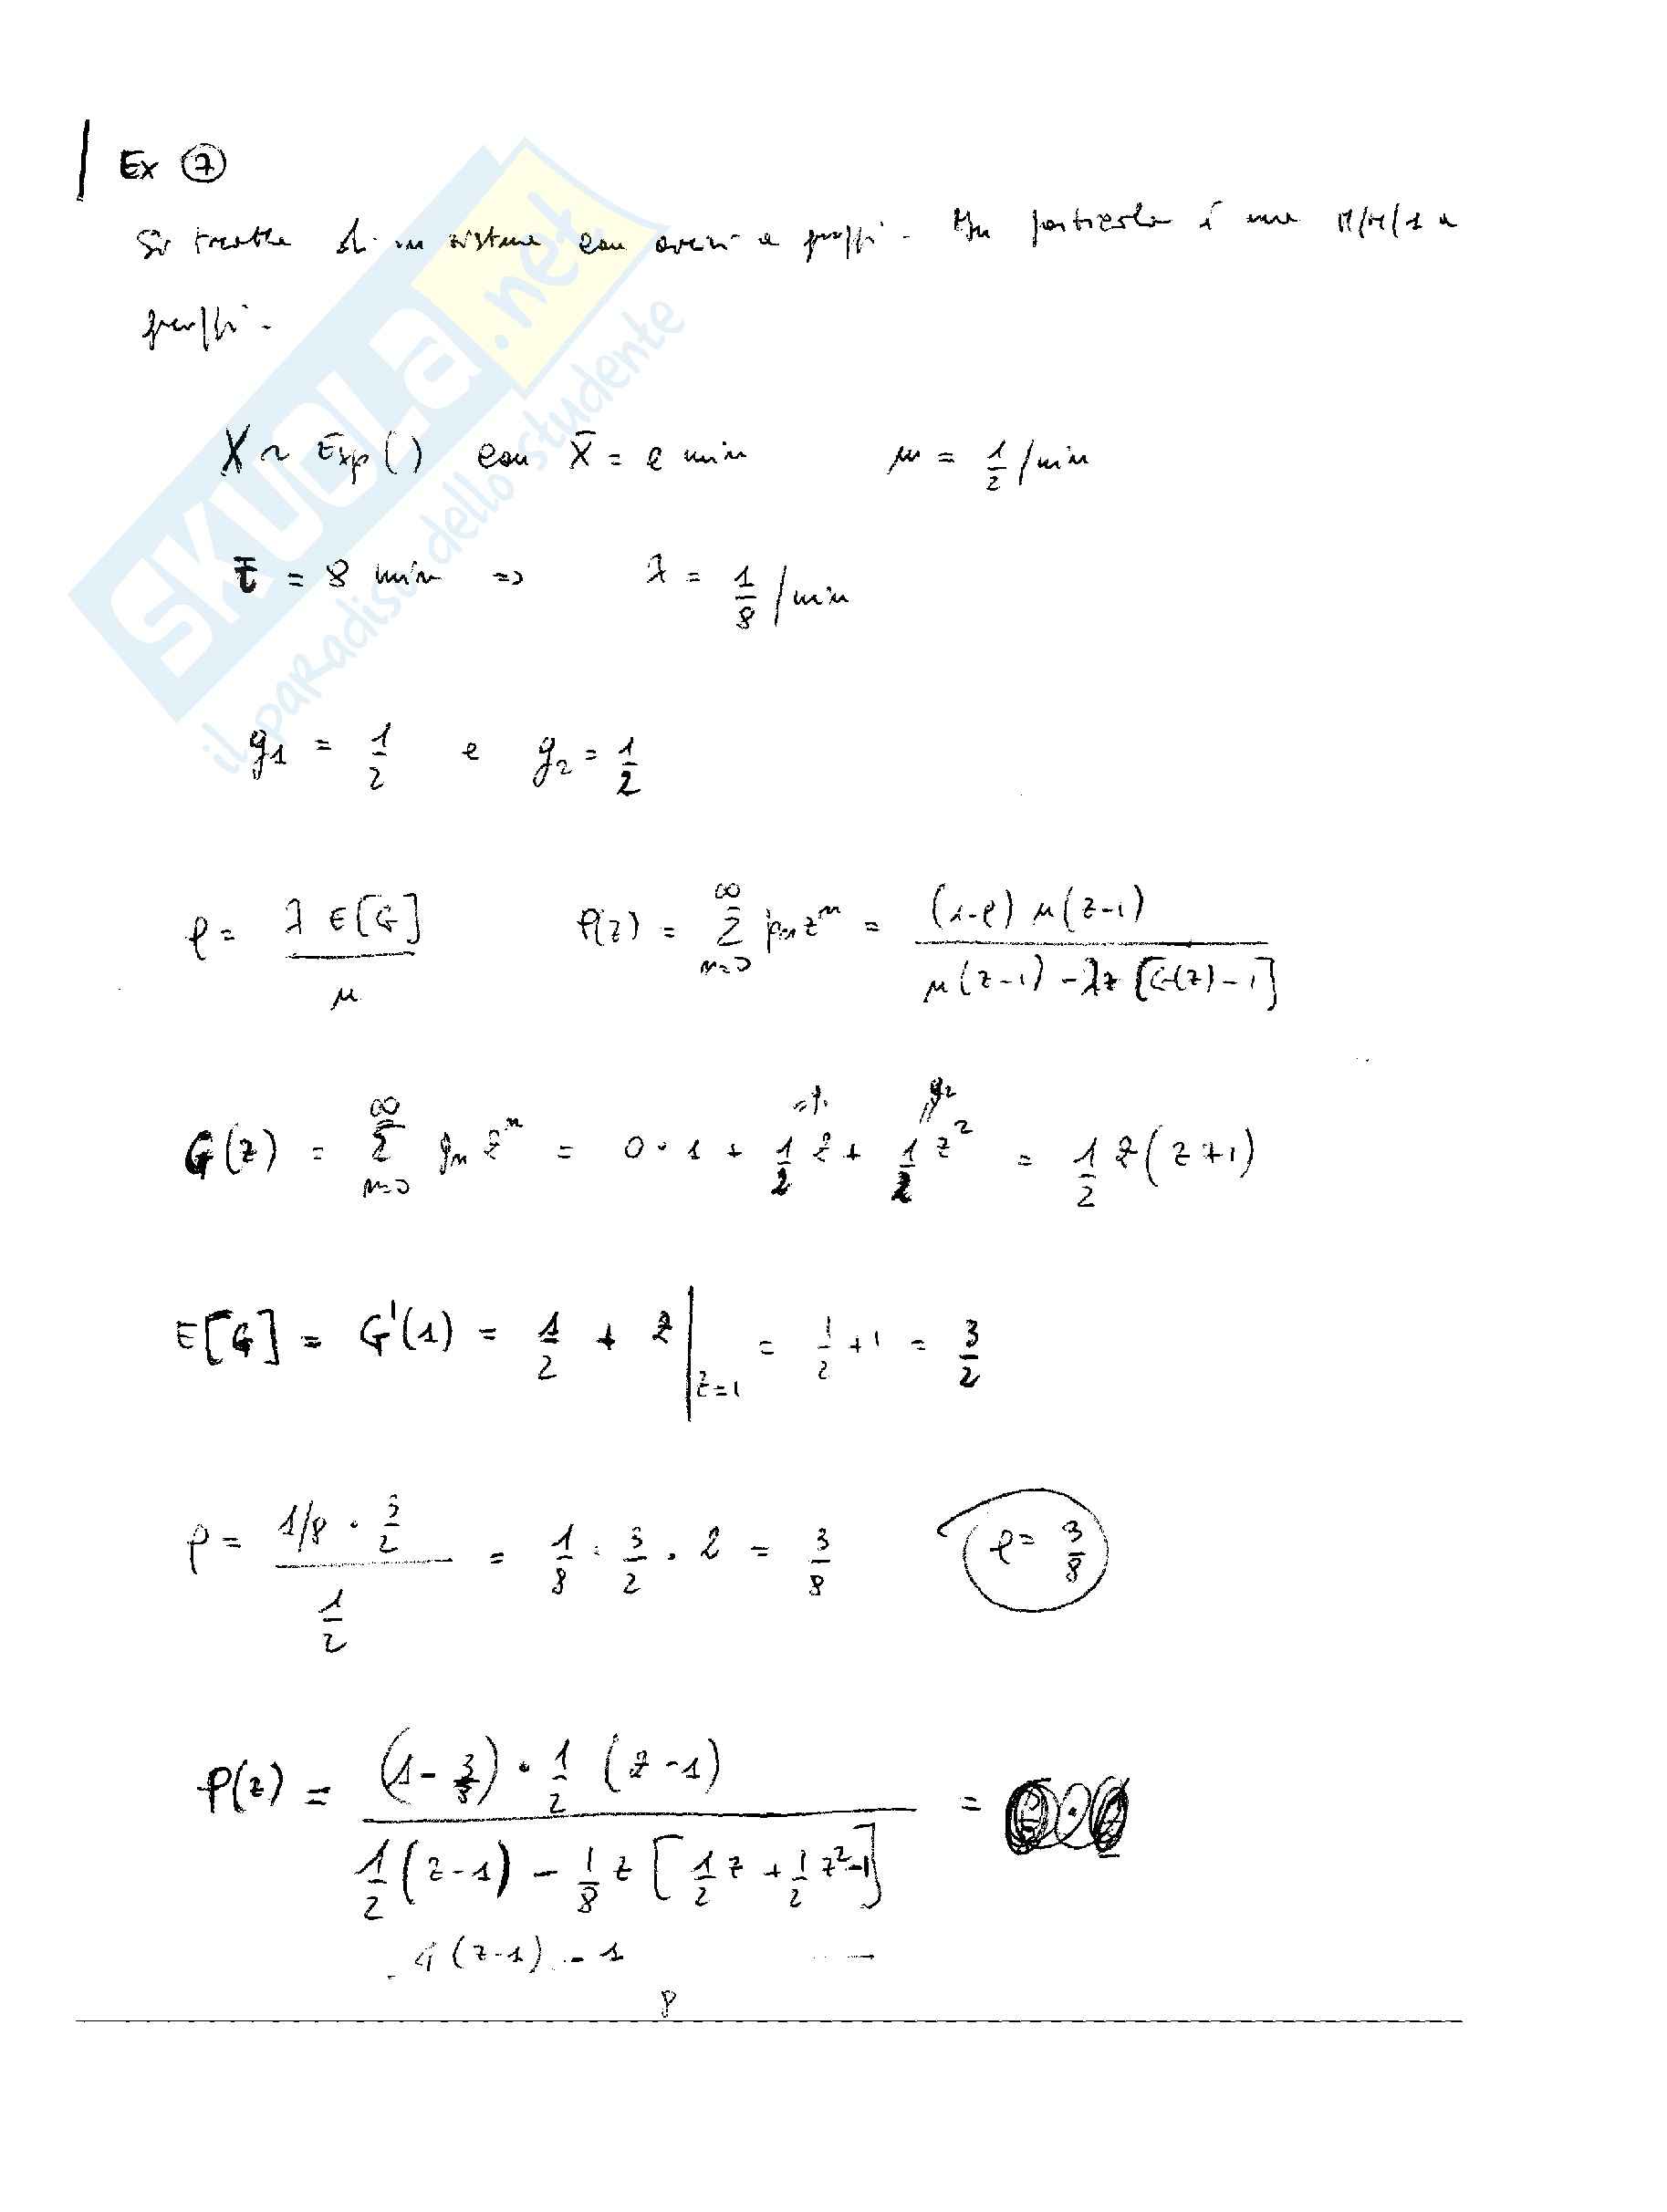 Ex ⑦
Si tratta di un sistema con arrivi a gruppi. In particolare è una M/M/1 a
gruppi.
SKUOLA.net
il paradiso dello studente
X ~ Exp() con X̄ = 2 min μ = 1/2 /min
t̄ = 8 min => λ = 1/8 /min
g₁ = 1/2 e g₂ = 1/2
ρ = λ E[G] / μ P(z) = Σ_{n=0}^{∞} pₙ zⁿ = (1-ρ) μ(z-1) / μ(z-1) - λz [G(z)-1]
g₂
G(z) = Σ_{n=0}^{∞} gₙ zⁿ = 0·1 + 1/2 z + 1/2 z² = 1/2 z(z+1)
E[G] = G'(1) = 1/2 + z |_{z=1} = 1/2 + 1 = 3/2
ρ = (1/8 · 3/2) / (1/2) = 1/8 · 3/2 · 2 = 3/8 ρ = 3/8
P(z) = (1 - 3/8) · 1/2 (z-1) / 1/2 (z-1) - 1/8 z [1/2 z + 1/2 z² - 1] =
4(z-1) - 1
8